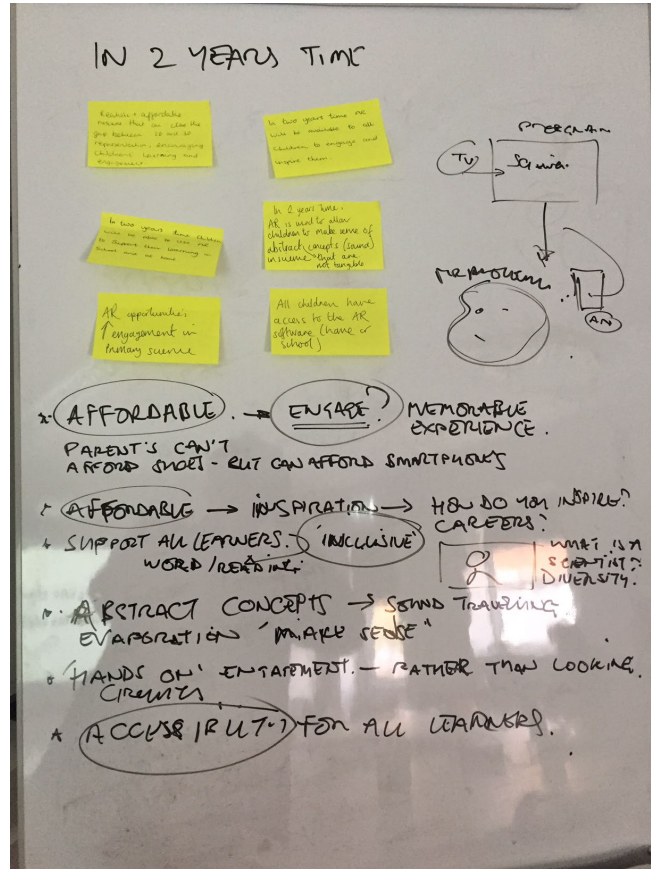 IN 2 YEARS TIME
Realistic + affordable
resource that can close the
gap between 2D and 3D
representation, encouraging
children's learning and
engagement
In two years time AR
will be available to all
children to engage and
inspire them.
In two years time children
will be able to use AR
to support their learning in
school and at home
In 2 years time.
AR is used to allow
children to make sense of
abstract concepts (sound)
in science that are
not tangible
AR opportunities
↑ engagement in
Primary science
All children have
access to the AR
software (home or
school)
PROGRAM
TV
Science
AFFORDABLE. → ENGAGE? MEMORABLE
EXPERIENCE.
PARENT'S CAN'T
AFFORD SHOES - BUT CAN AFFORD SMARTPHONES
AFFORDABLE → INSPIRATION → HOW DO YOU INSPIRE?
CAREERS?
SUPPORT ALL LEARNERS. 'INCLUSIVE'
WORD/READING.
WHAT IS A
SCIENTIST?
DIVERSITY.
ABSTRACT CONCEPTS → SOUND TRAVELLING
EVAPORATION 'MAKE SENSE'
'HANDS ON' ENGAGEMENT. - RATHER THAN LOOKING.
CIRCUITS
ACCESSIBILITY FOR ALL LEARNERS.